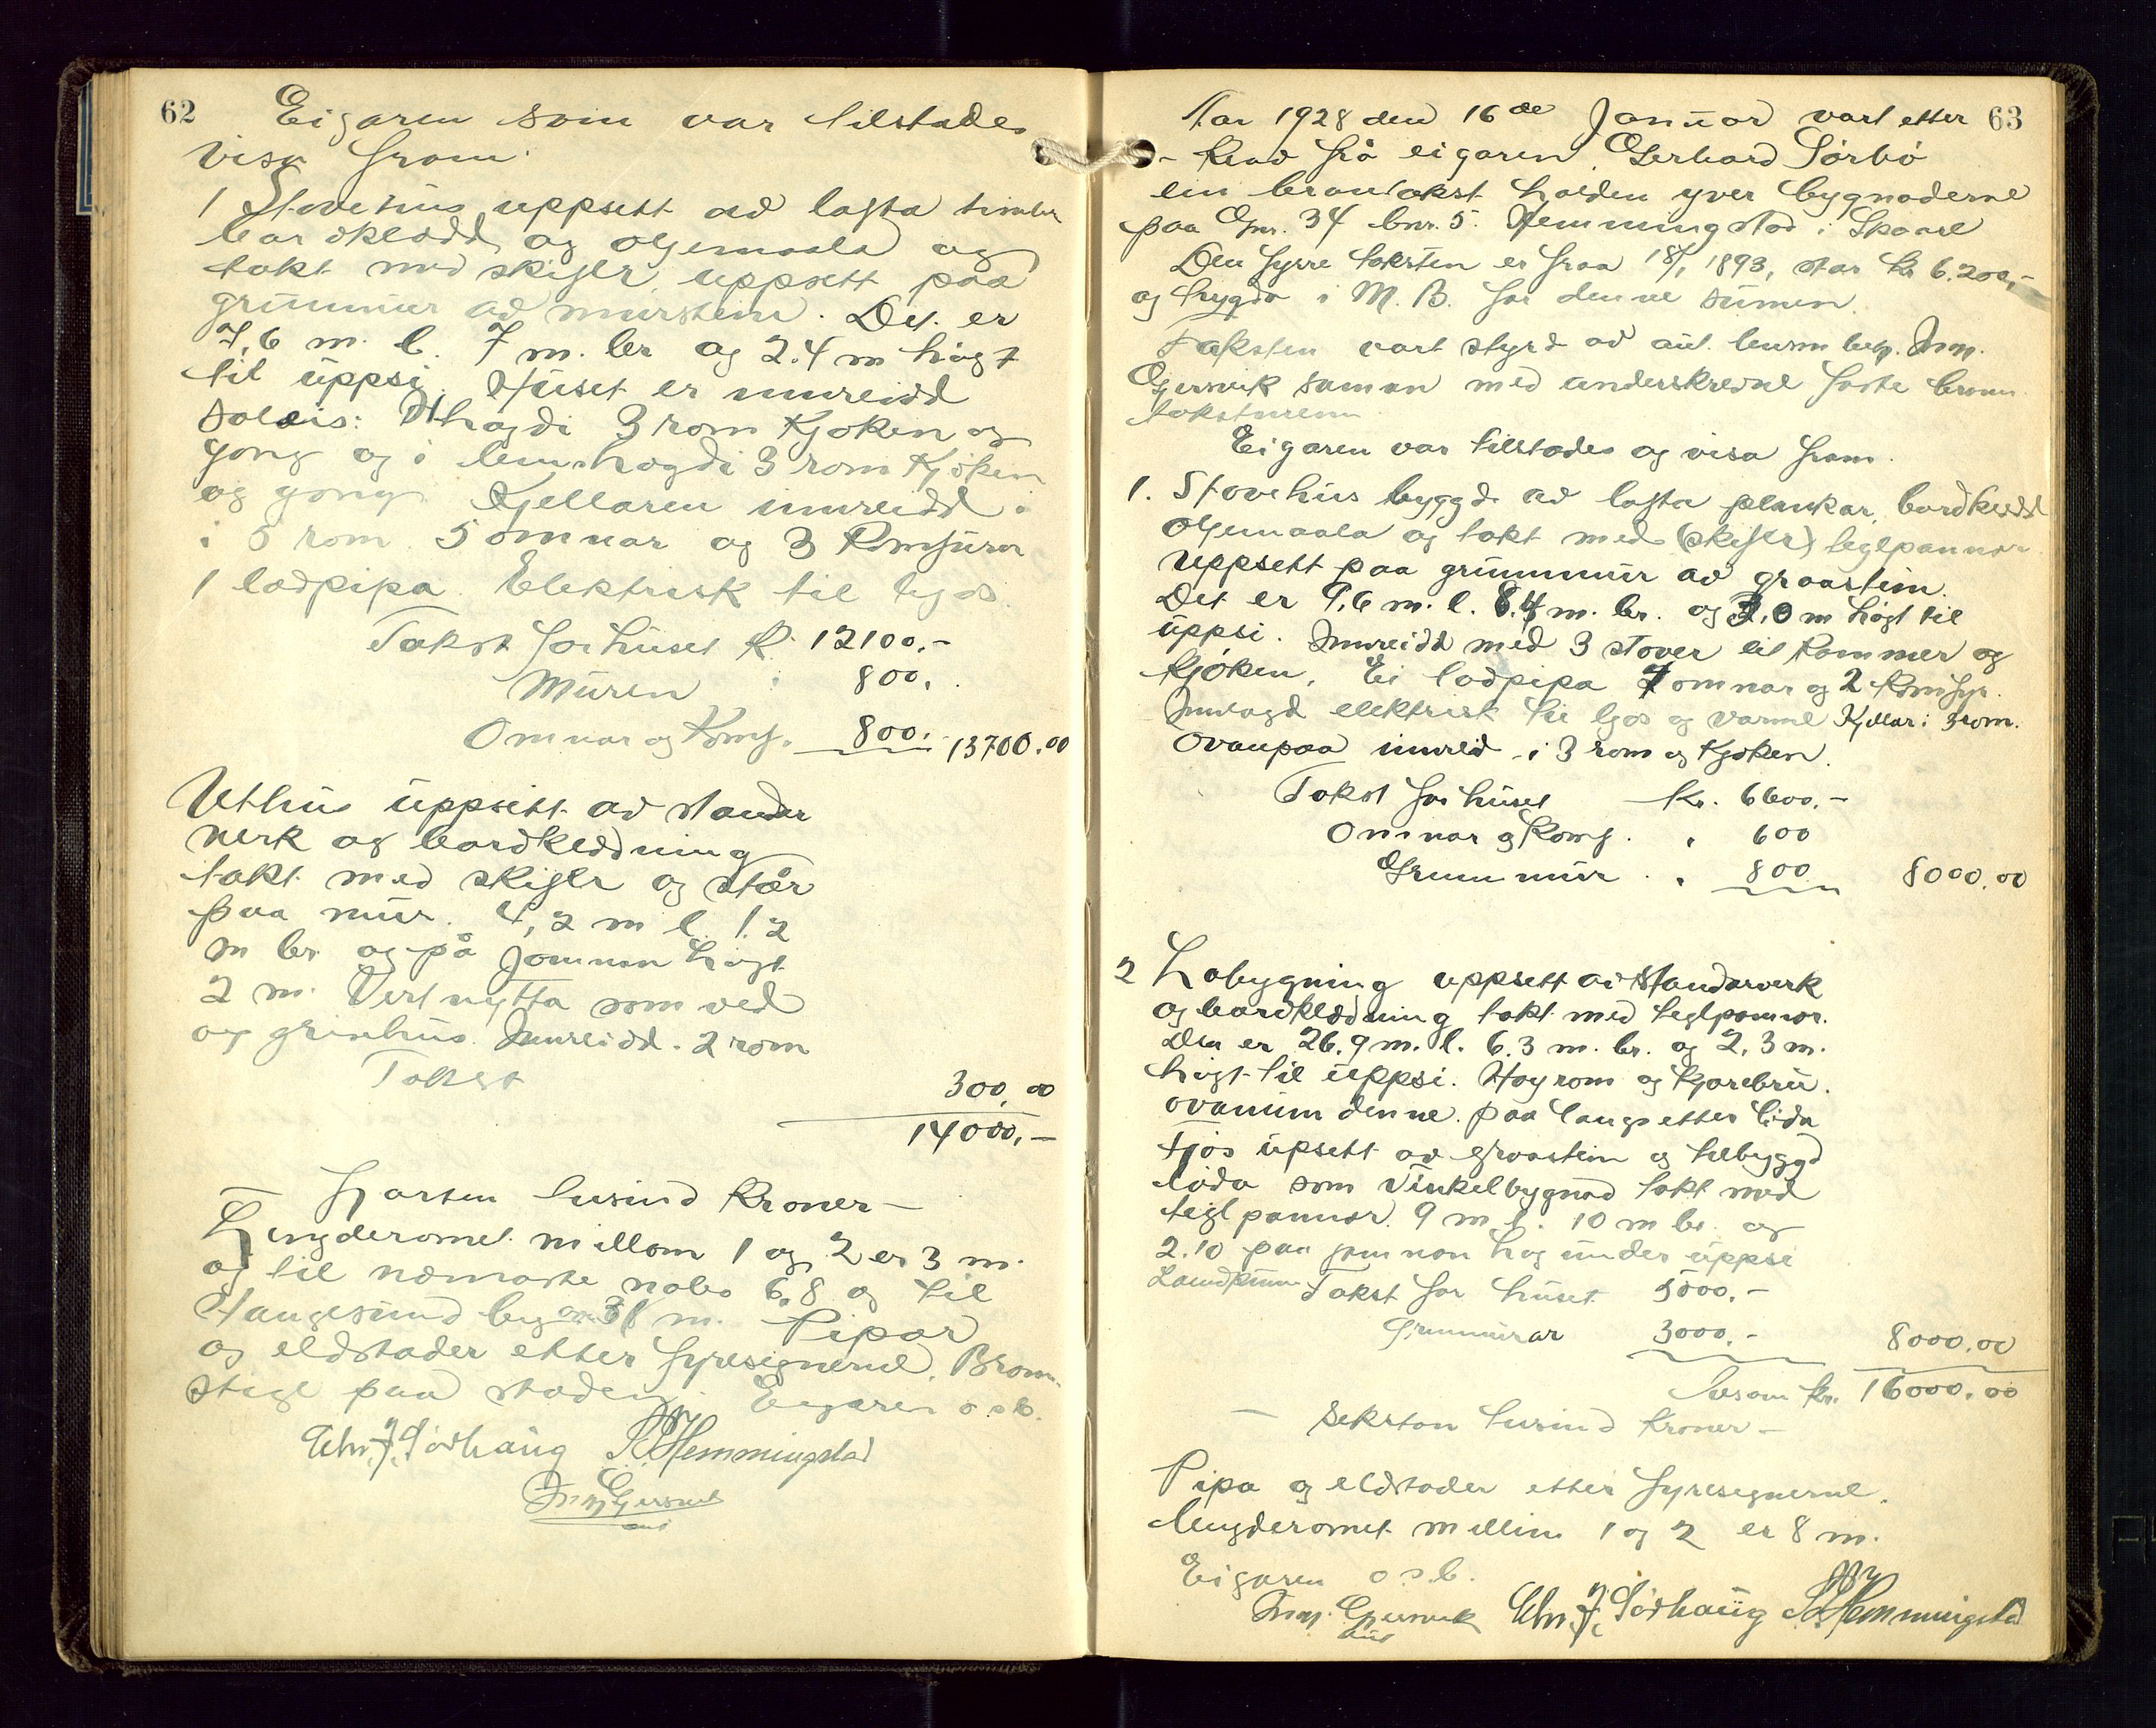 62
Eigaren som var tilstades
visa fram:
1 Stovehus uppsett av lafta timber
bordklædd og oljemaala og
takt med skifer, uppsett paa
grunnmur av murstein. Det er
7,6 m. l. 7 m. br og 2.4 m högt
til uppsi. Huset er innreidd
soleis: 1 högdi 3 rom Kjøken og
gong og i lemhøgdi 3 rom Kjøken
og gong. Kjellaren innreidd
i 5 rom. 5 omnar og 3 Komfurer
1 lødpipa. Elektrisk til ljos.
Takst for huset Kr. 12100.-
Muren 800.
Omnar og Komf. 800. 13700.00
Uthus uppsett av stander
verk og bordkledning
takt med skifer og står
paa mur. 4,2 m l. 1.2
m br og på jamnan högt
2 m. Vert nytta som ved
og grisehus. Innreidd. 2 rom
Takst
300.00
14000.-
Fjorten tusind Kroner -
Lengderomet millom 1 og 2 er 3 m.
og til næmaste nabo 6.8 og til
Haugesund by 31 m. Pipor
og eldstader etter fyresegnerne. Brann
stige paa staden. Eigaren o s b.
Chr. J. Sørhaug S. Hemmingstad
Inny Gjersvik

63
Aar 1928 den 16de Januar vart etter
- krav frå eigaren Gerhard Sørbö
ein branntakst halden yver bygnaderne
paa Gnr. 34 bnr. 5. Hemmingstad i Skaare
Den fyrre taksten er fraa 18/1 1893, stor kr 6.200,-
og trygda i M. B. for denne sumen.
Taksten vart styrd av aut. lensm. betj. Inny.
Gjersvik saman med underskrevne faste brann
takstmenn
Eigaren var tilstades og visa fram.
1. Stovehus byggd av lafta plankar, bordkledd
oljemaala og takt med (skifer) teglpannor
uppsett paa grunnmur av graastein.
Det er 9,6 m. l. 8.4 m. br. og 3.0 m högt til
uppsi. Innreidd med 3 stover eit kammer og
kjøken. Ei lødpipa 7 omnar og 2 Komfyr.
Innlagd elektrisk til ljos og varme Kjellar i 3 rom.
Ovanpaa innreid i 3 rom og Kjøken.
Takst for huset Kr. 6600.-
Omnar og Komf. " 600
Grunnmur . " 800 8000.00
2 Løbygning uppsett av standarverk
og bordklædning takt med teglpannor.
Den er 26.9 m. l. 6.3 m. br. og 2.3 m.
högt til uppsi. Høyrom og kjørebru.
ovanum denne. paa langs etter löda
fjös upsett av graastein og tilbyggd
löda som Vinkelbygnad takt med
teglpannor. 9 m l. 10 m br. og
2.10 paa jamnan høg under uppsi
Landkum Takst for huset 5000.-
Grunnmurar 3000.- 8000.00
Tilsam kr. 16000.00
- Sekstan tusind Kroner -
Pipa og eldstader etter fyresegnerne.
Lengderomet millim 1 og 2 er 8 m.
Eigaren o s b.
Inny. Gjersvik Chr. J. Sørhaug S. Hemmingstad